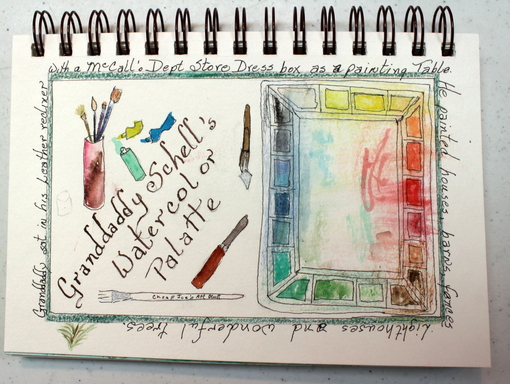 Granddaddy sat in his leather recliner
with a McCall's Dept Store Dress box as a painting Table.
He painted houses, barns, fences
Lighthouses and wonderful trees.
Granddaddy Schell's
Watercolor
Palatte
Cheap Joe's Art Stuff